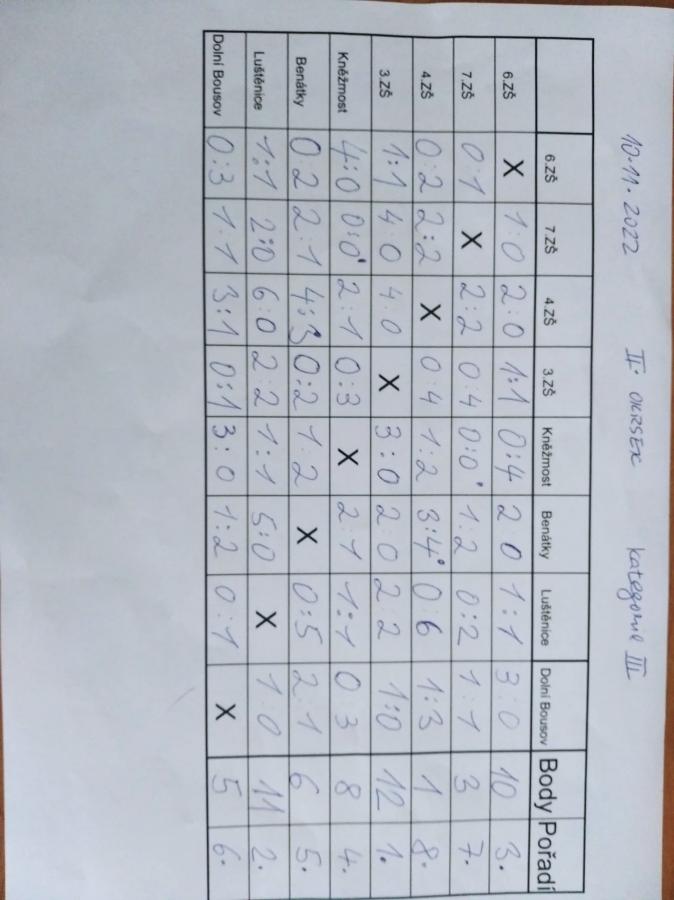 10.11. 2022 II. OKRSEK kategorie III
6.ZŠ 7.ZŠ 4.ZŠ 3.ZŠ Kněžmost Benátky Luštěnice Dolní Bousov Body Pořadí
6.ZŠ X 1:0 2:0 1:1 0:4 2 0 1:1 3:0 10 3.
7.ZŠ 0:1 X 2:2 0:4 0:0 1:2 0:2 1:1 3 7.
4.ZŠ 0:2 2:2 X 0:4 1:2 3:4 0:6 1:3 1 8.
3.ZŠ 1:1 4:0 4:0 X 3:0 2:0 2:2 1:0 12 1.
Kněžmost 4:0 0:0 2:1 0:3 X 2:1 1:1 0 3 8 4.
Benátky 0:2 2:1 4:3 0:2 1:2 X 0:5 2:1 6 5.
Luštěnice 1:1 2:0 6:0 2:2 1:1 5:0 X 1:0 11 2.
Dolní Bousov 0:3 1:1 3:1 0:1 3:0 1:2 0:1 X 5 6.